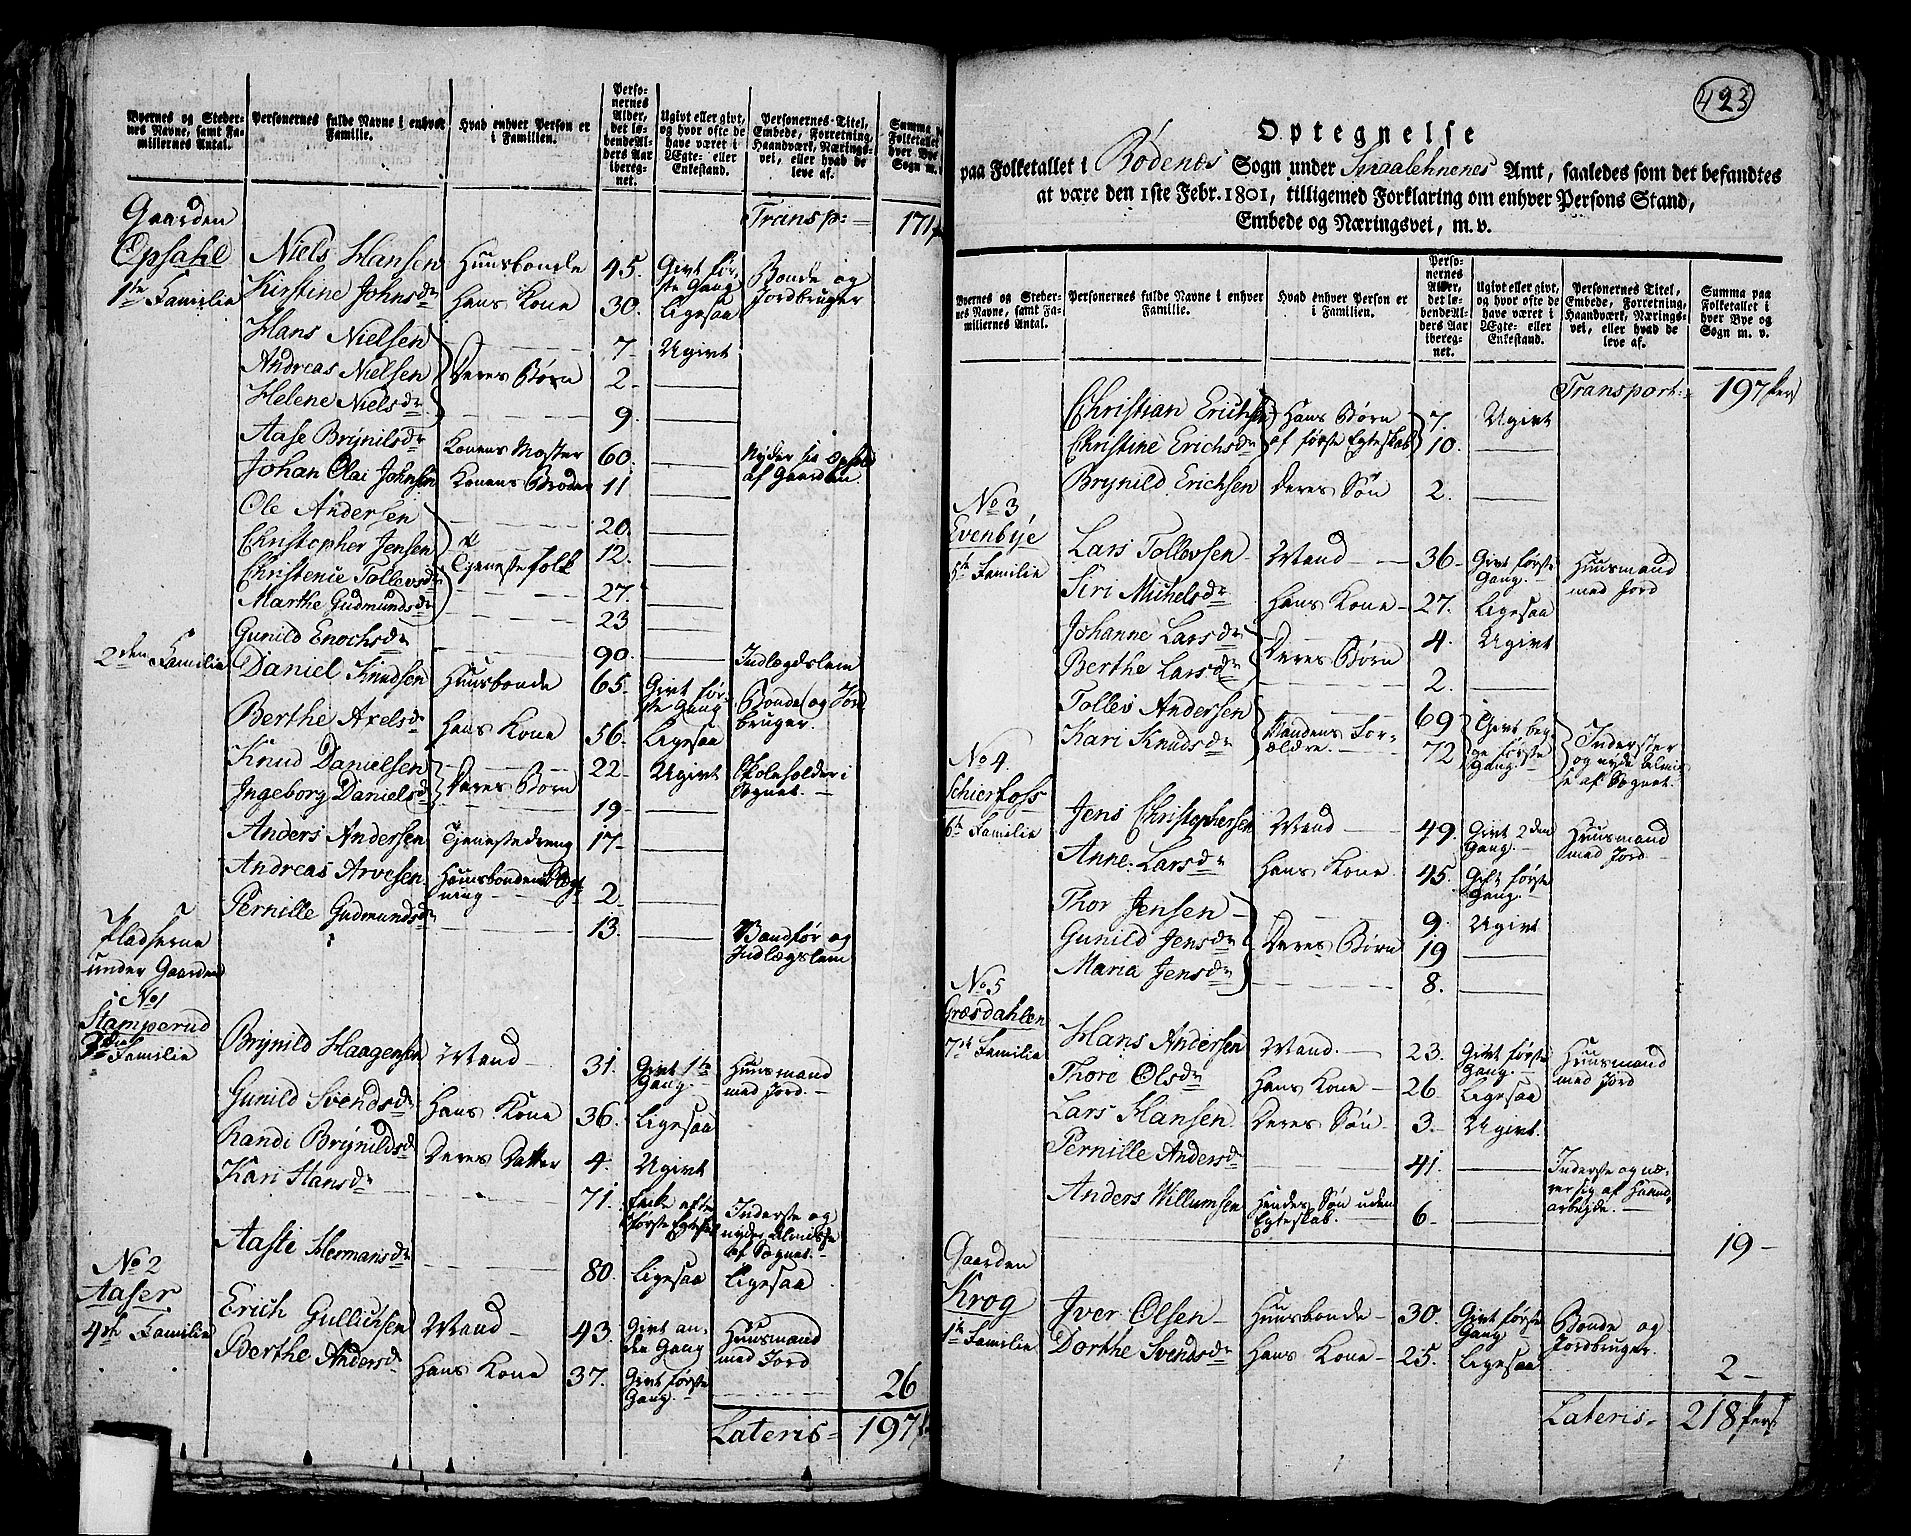 Byernes og Steder-
nes Navne, samt Fa-
miliernes Antal.
Personernes fulde Navne i enhver
Familie.
Hvad enhver Person er
i Familien.
Perso-
nernes
Alder,
det lø-
bende Al-
ders Aar
iberegnet.
Ugivt eller givt,
og hvor ofte de
have været i
Ægte- eller
Enkestand.
Personernes Titel,
Embede, Forretning,
Haandværk, Nærings-
vei, eller hvad de
leve af.
Summa
Folketallet
hver Bye
Sogn m.
Gaarden Transp: 171
Opsahl Niels Hansen Huusbonde 45. Givt før- Bonde og
ste Gang Jordbruger
1te Familie Kirstine Johnsdr Hans Kone 30. Ligesaa
Hans Nielsen 7 Ugivt
Andreas Nielsen Deres Børn 2
Helene Nielsdr 9.
Aase Brÿnilsdr Konens Moster 60. Nyder sit Ophold
af Gaarden
Johan Olai Johnsen Konens Broder 11
Ole Andersen 20.
Christopher Jensen 12.
Tjenestefolk
Christenie Tollevsdr 27.
Marthe Gudmundsdr 23
Gunild Enochsdr 90. Indlægdslem
2den Familie Daniel Knudsen Huusbonde 65. Givt før- Bonde og Jord
ste Gang bruger.
Berthe Axelsdr Hans Kone 56. Ligesaa
Knud Danielsen 22 Ugivt Skoleholder i
Sognet.
Deres Børn
Ingeborg Danielsdr 19
Anders Andersen Tjenestedreng 17
Andreas Arvesen Huusbondens Slægt-
ning 2
Pernille Gudmundsdr 13. Vanfør og
Indlægslem
Pladserne
under Gaarden
No 1
Stamperud
3die Familie Brÿnild Haagensen Mand 31. Givt 1te Huusmand
Gang. med Jord.
Gunild Svendsdr Hans Kone 36. Ligesaa
Randi Brÿnildsdr Deres Datter 4. Ugivt
Kari Hansdr 71. Enke efter Inderste og
første Egteskab nyder Almisse
af Sognet.
Aaste Hermansdr 80. Ligesaa Ligesaa
No 2
Aaser
4de Familie Erich Gulliksen Mand 43. Givt an- Huusmand
den Gang med Jord
Berthe Andersdr Hans Kone 37. Givt første
Gang. 26
Lateris 197
423
Optegnelse
paa Folketallet i Rødenes Sogn under Smaalehnenes Amt, saaledes som det befandtes
at være den 1ste Febr. 1801, tilligemed Forklaring om enhver Persons Stand,
Embede og Næringsvei, m. v.
Byernes og Steder-
nes Navne, samt Fa-
miliernes Antal.
Personernes fulde Navne i enhver
Familie.
Hvad enhver Person er
i Familien.
Perso-
nernes
Alder,
det lø-
bende Al-
ders Aar
iberegnet.
Ugivt eller givt,
og hvor ofte de
have været i
Ægte- eller
Enkestand.
Personernes Titel,
Embede, Forretning,
Haandværk, Nærings-
vei, eller hvad de
leve af.
Summa paa
Folketallet i
hver Bye og
Sogn m. v.
Transport: 197 pers
Christian Erichsen Hans Børn 7. Ugivt
Christine Erichsdr af første Egteskab 10.
Brÿnild Erichsen Deres Søn 2.
No 3
Evenbÿe
5te Familie Lars Tollevsen Mand 36 Givt første Huusmand
Gang. med Jord
Siri Michelsdr Hans Kone 27. Ligesaa
Johanne Larsdr 4. Ugivt
Deres Børn
Berthe Larsdr 2.
Tollev Andersen 69 Givt beg-
Mandens For- ge første Inderster
ældre. Gang. og nyde Almis-
Kari Knudsdr 72 se af Sognet.
No 4.
Schierfoss
6te Familie Jens Christophersen Mand 49. Givt 2den Huusmand
Gang. med Jord
Anne Larsdr Hans Kone 45. Gift første
Gang.
Thor Jensen 9. Ugivt
Gunild Jensdr Deres Børn 19
Maria Jensdr 8.
No 5
Græsdahlen
7de Familie Hans Andersen Mand. 23. Givt første Huusmand
Gang. med Jord
Thore Olsdr Hans Kone 26 Ligesaa
Lars Hansen Deres Søn 3. Ugivt.
Pernille Andersdr 41. Inderste og næ-
rer sig af Haand-
arbejde.
Anders Willumsen Hendes Søn uden
Egteskab. 6
19
Gaarden
Krog
1te Familie Iver Olsen Huusbonde 30. Givt første Bonde og
Gang Jordbruger.
Dorthe Svendsdr Hans Kone 25. Ligesaa
2
Lateris 218 pers